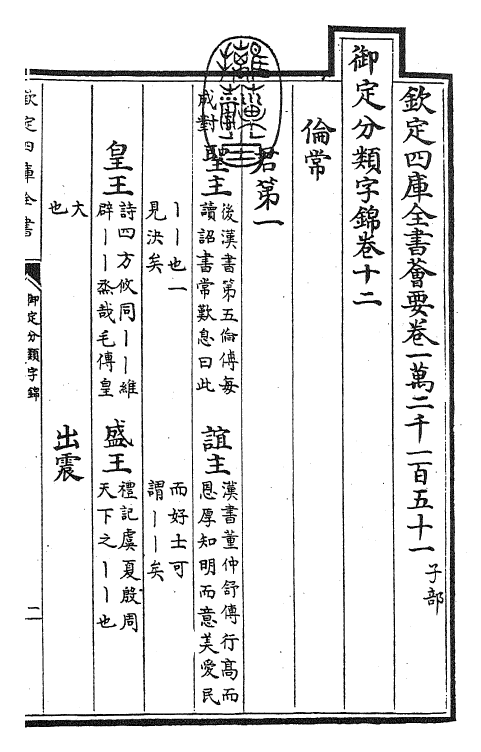 欽定四庫全書薈要卷一萬二千一百五十一 子部
御定分類字錦卷十二
倫常
君第一
成對 聖主 後漢書第五倫傳每
讀詔書常歎息曰此
誼主 漢書董仲舒傳行高而
恩厚知明而意美愛民
丨丨也一
見決矣
而好士可
謂丨丨矣
皇王 詩四方攸同丨丨維
辟丨丨烝哉毛傳皇
盛王 禮記虞夏殷周
天下之丨丨也
大
也
出震
欽定四庫全書
御定分類字錦